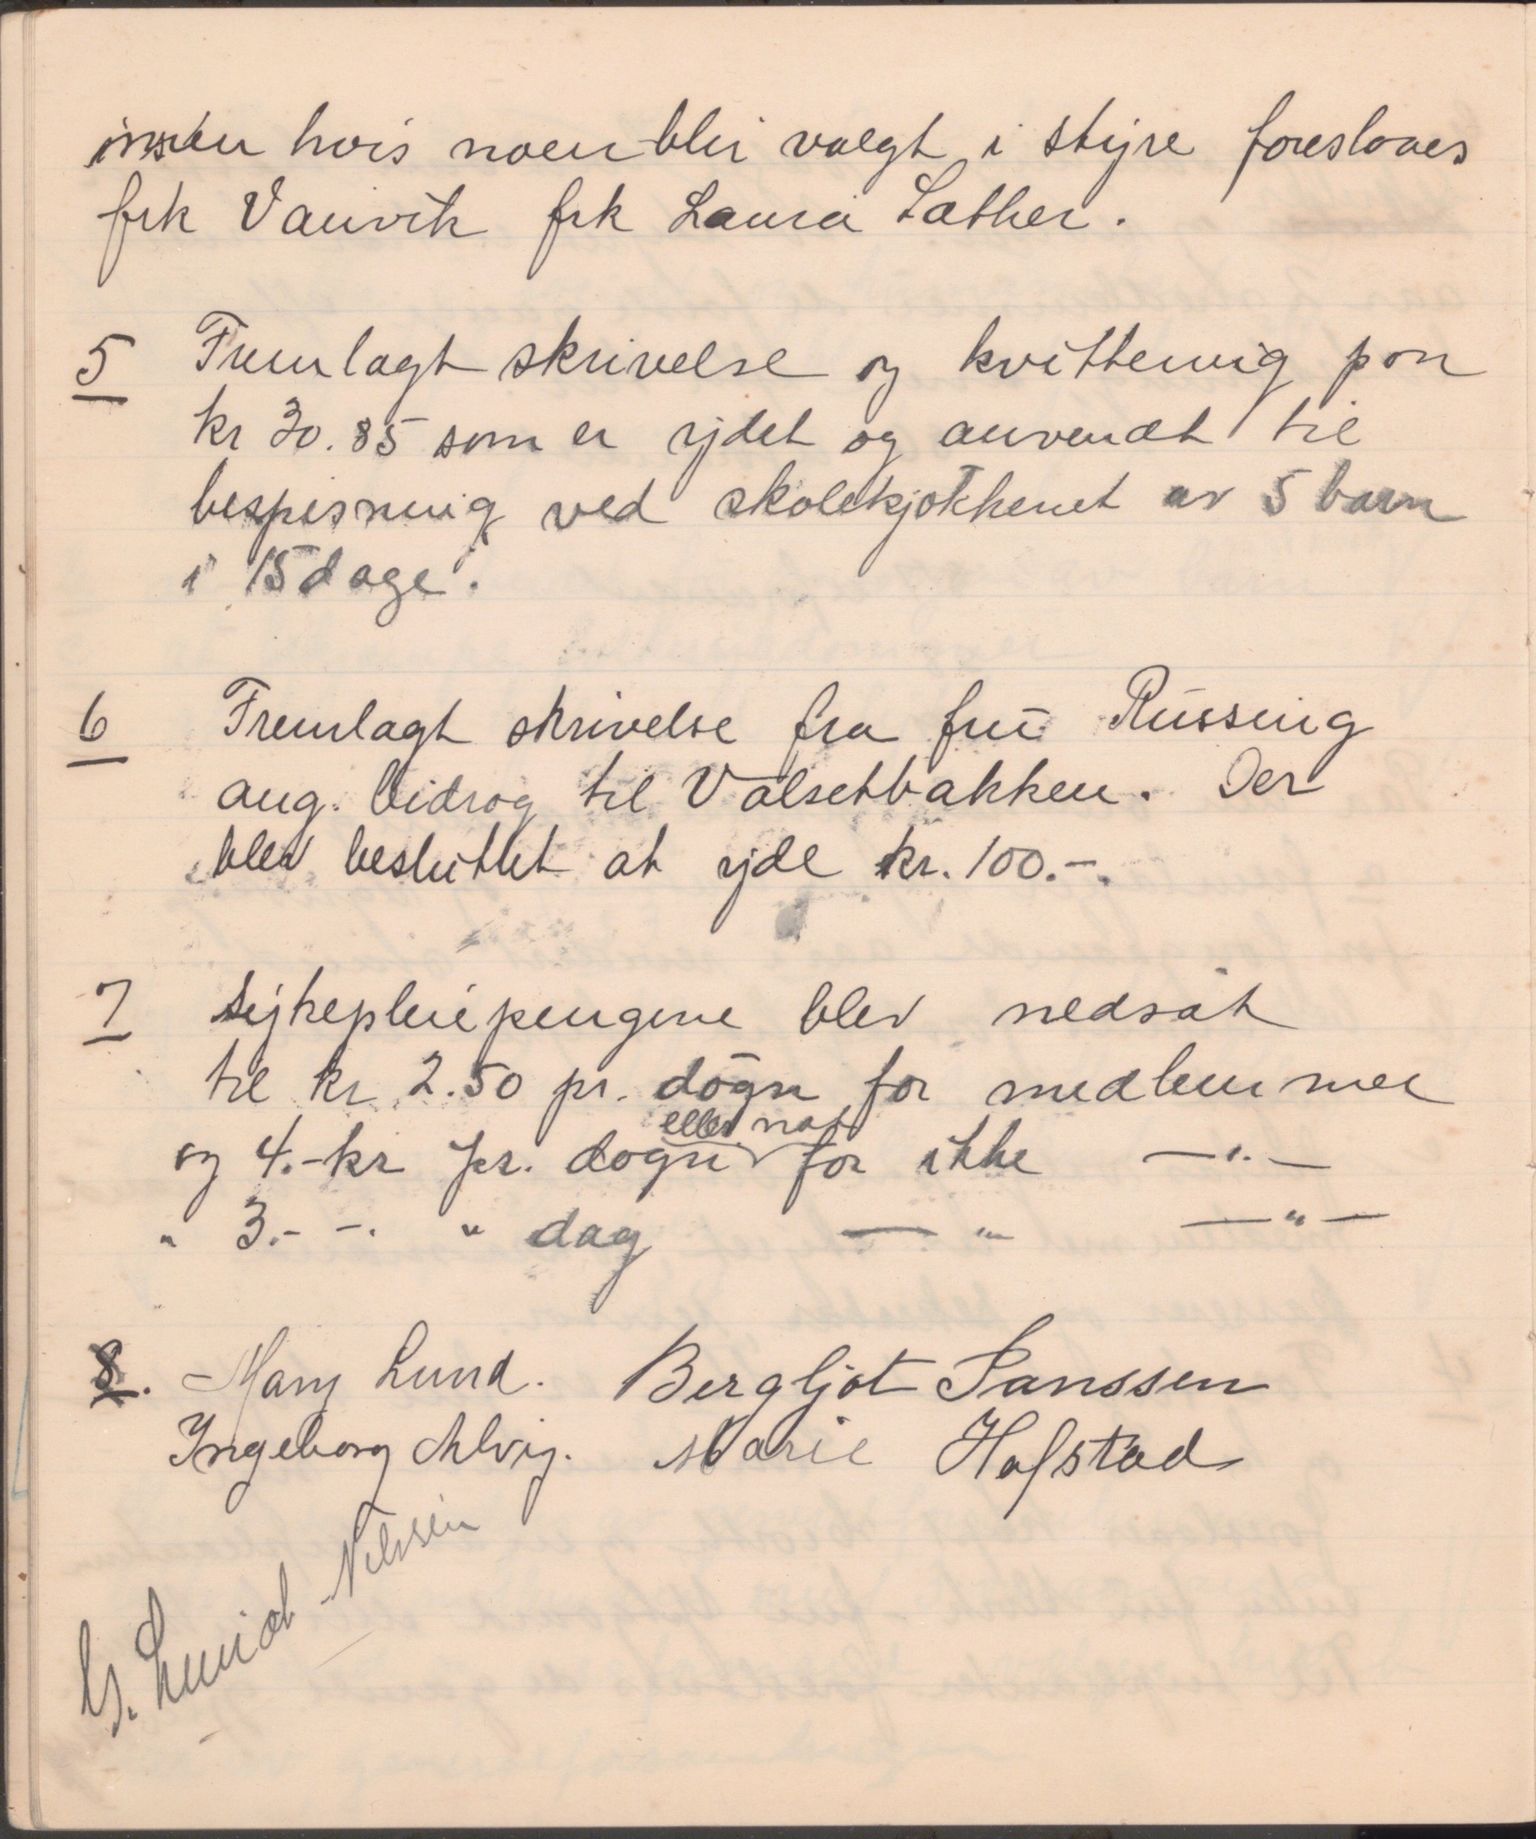 hvis noen blir valgt i styre foreslaaes
frk Vanvik frk Laura Sæther.
5 Fremlagt skrivelse og kvittering paa
kr 30.85 som er ydet og anvendt til
bespisning ved skolekjøkkenet av 5 barn
i 15 dage.
6 Fremlagt skrivelse fra fru Rüssing
ang. bidrag til Valsetbakken. Der
blev besluttet at yde kr. 100.-.
7 Sykepleiepengene blev nedsat
til kr 2.50 pr. døgn for medlemmer
eller nat
og 4.-kr pr. døgn for ikke —"—
" 3.- -. " dag — " —"—
8. Mary Lund. Bergljot Janssen
Ingeborg Alvig. Marie Hofstad
G. Schmidt Nilssen